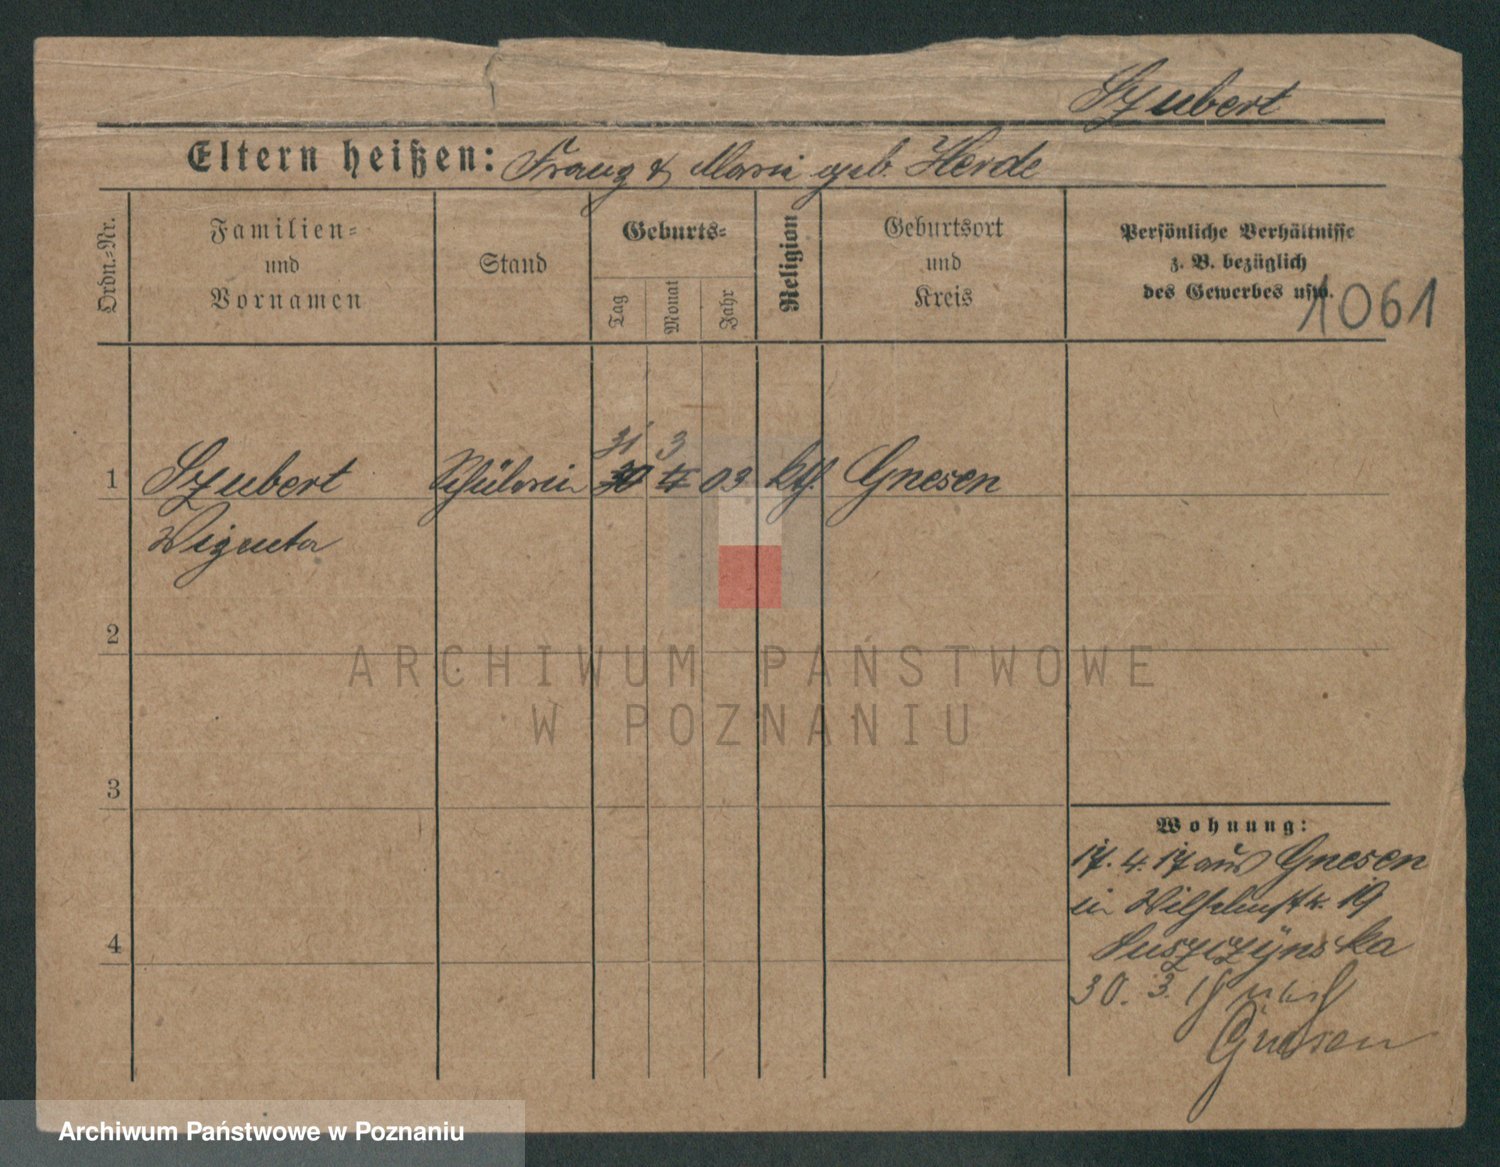 Szubert
Eltern heißen: Franz & Marie geb. Herde
Ordn.-Nr.
Familien-
und
Vornamen
Stand
Geburts-
Tag
Monat
Jahr
Religion
Geburtsort
und
Kreis
Persönliche Verhältnisse
z. B. bezüglich
des Gewerbes usw.
1061
31 3
1 Szubert Schülerin 30 03 kth. Gnesen
2
3
4
Wohnung:
17. 4. 17 aus Gnesen
in Wilhelmstr. 19
30. 3. nach
Gnesen
ARCHIWUM PAŃSTWOWE
W POZNANIU
Archiwum Państwowe w Poznaniu